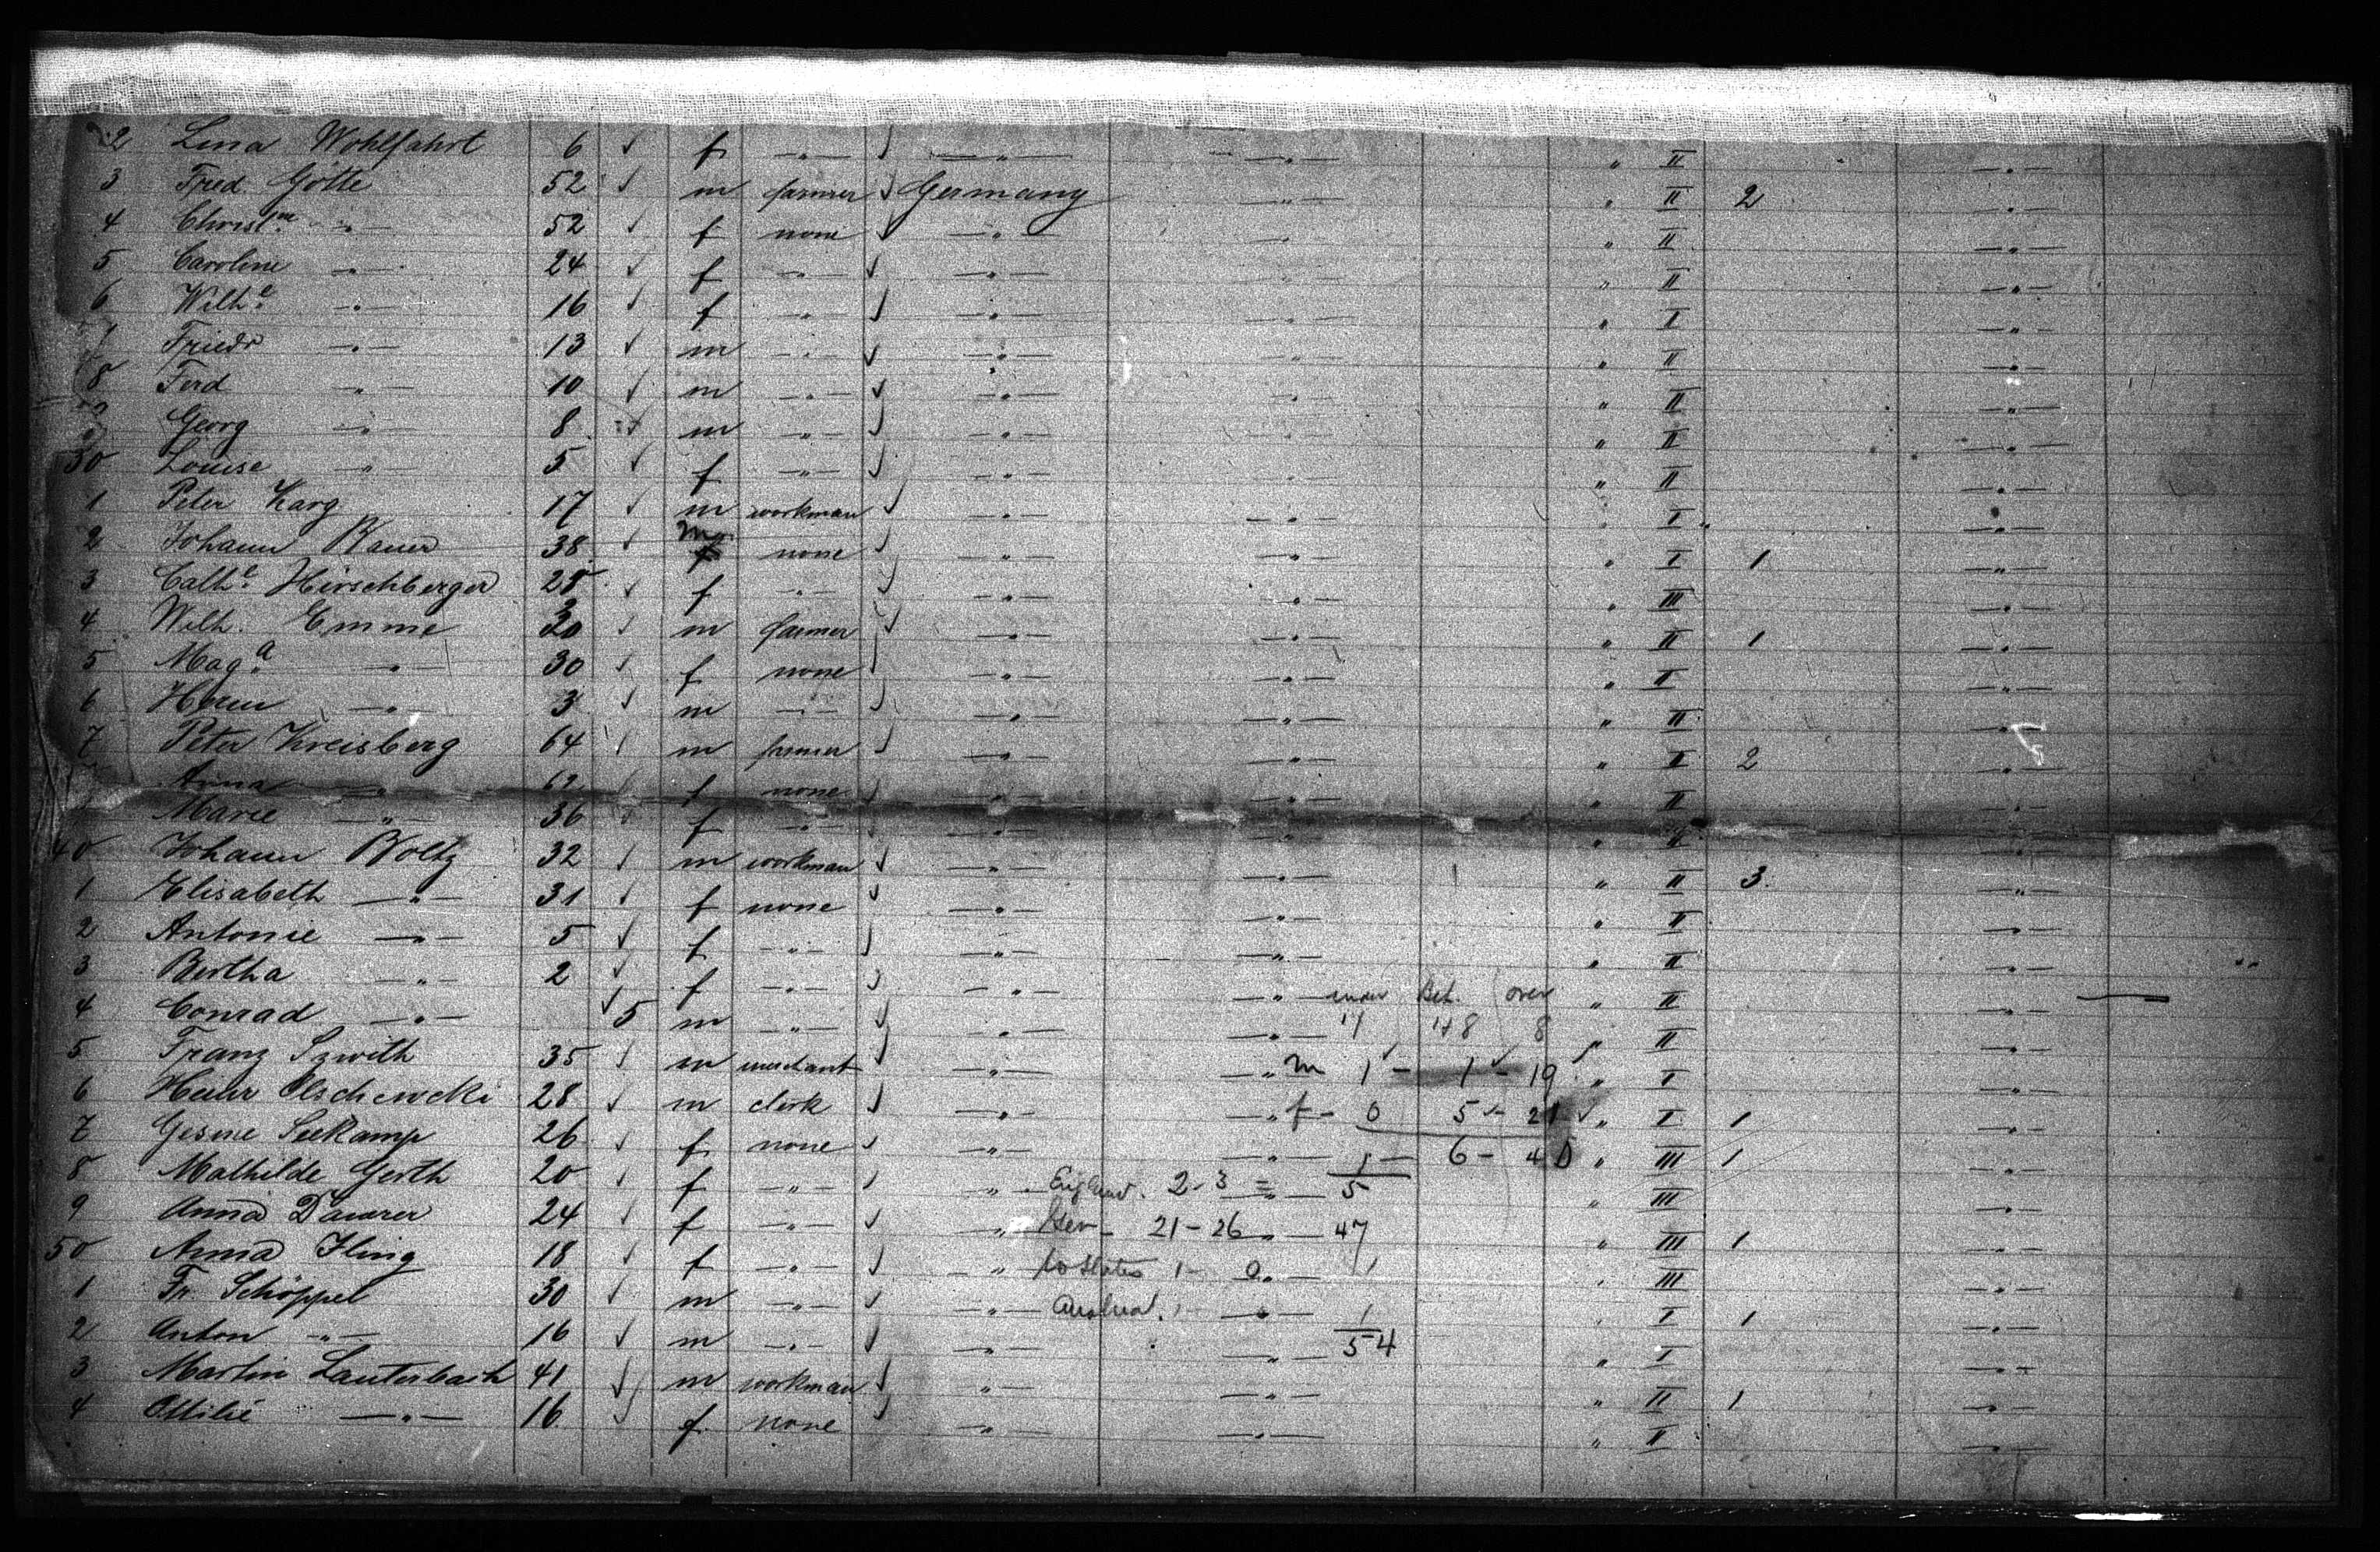 2 Lina Wohlfahrt 6 ✓ f —"— ✓ —"— —"— " II —"—
3 Fred Götte 52 ✓ m farmer ✓ Germany —"— " II 2 —"—
4 Christ.ne —"— 52 ✓ f none ✓ —"— —"— " II —"—
5 Caroline —"— 24 ✓ f —"— ✓ —"— —"— " II —"—
6 Wilh.e —"— 16 ✓ f —"— ✓ —"— —"— " I —"—
7 Friedr —"— 13 ✓ m —"— ✓ —"— —"— " II —"—
8 Ferd —"— 10 ✓ m —"— ✓ —"— —"— " II —"—
Georg —"— 8 ✓ m —"— ✓ —"— —"— " II —"—
30 Louise —"— 5 ✓ f —"— ✓ —"— —"— " II —"—
1 Peter Karg 17 ✓ m workman ✓ —"— —"— " I —"—
2 Johann Bauer 38 ✓ m none ✓ —"— —"— " I 1 —"—
3 Cath.e Hirschberger 25 ✓ f —"— ✓ —"— —"— " III —"—
4 Wilh. Emme 30 ✓ m farmer ✓ —"— —"— " II 1 —"—
5 Mag.a —"— 30 ✓ f none ✓ —"— —"— " II —"—
6 Herm —"— 3 ✓ m —"— ✓ —"— —"— " II —"—
7 Peter Kreisberg 64 ✓ m farmer ✓ —"— —"— " II 2 —"—
Anna —"— 62 f none ✓ —"— —"— " II —"—
Marie —"— 36 ✓ f —"— ✓ —"— —"— " II —"—
40 Johann Boltz 32 ✓ m workman ✓ —"— —"— " II 3 —"—
1 Elisabeth —"— 31 ✓ f none ✓ —"— —"— " II —"—
2 Antonie —"— 5 ✓ f —"— ✓ —"— —"— " II —"—
3 Bertha —"— 2 ✓ f —"— ✓ —"— —"— under Bet. over " II —"—
4 Conrad —"— ✓ 5 m —"— ✓ —"— —"— 1 1+8 8 " II —"—
5 Franz Szwith 35 ✓ m merchant ✓ —"— —"— m 1 — 1 — 19 " I —"—
6 Heinr Olschewcki 28 ✓ m clerk ✓ —"— —"— f — 0 5 — 21 ✓ " I 1 —"—
7 Gesine Seekamp 26 ✓ f none ✓ —"— —"— 1 — 6 — 40 " III 1 —"—
8 Mathilde Gerth 20 ✓ f —"— ✓ —"— England. 2-3 = 5 " III —"—
9 Anna Daurer 24 ✓ f —"— ✓ —"— Ger — 21 - 26 — 47 " III 1 —"—
50 Anna Iling 18 ✓ f —"— ✓ —"— U States 1 - 0 — 1 " III —"—
1 Fr. Schöppel 30 ✓ m —"— ✓ —"— 1 — 1 " I 1 —"—
2 Anton —"— 16 ✓ m —"— ✓ —"— —"— 54 " I —"—
3 Martin Lauterbach 41 ✓ m workman ✓ —"— —"— " II 1 —"—
4 Ottilie —"— 16 ✓ f none ✓ —"— —"— " II —"—